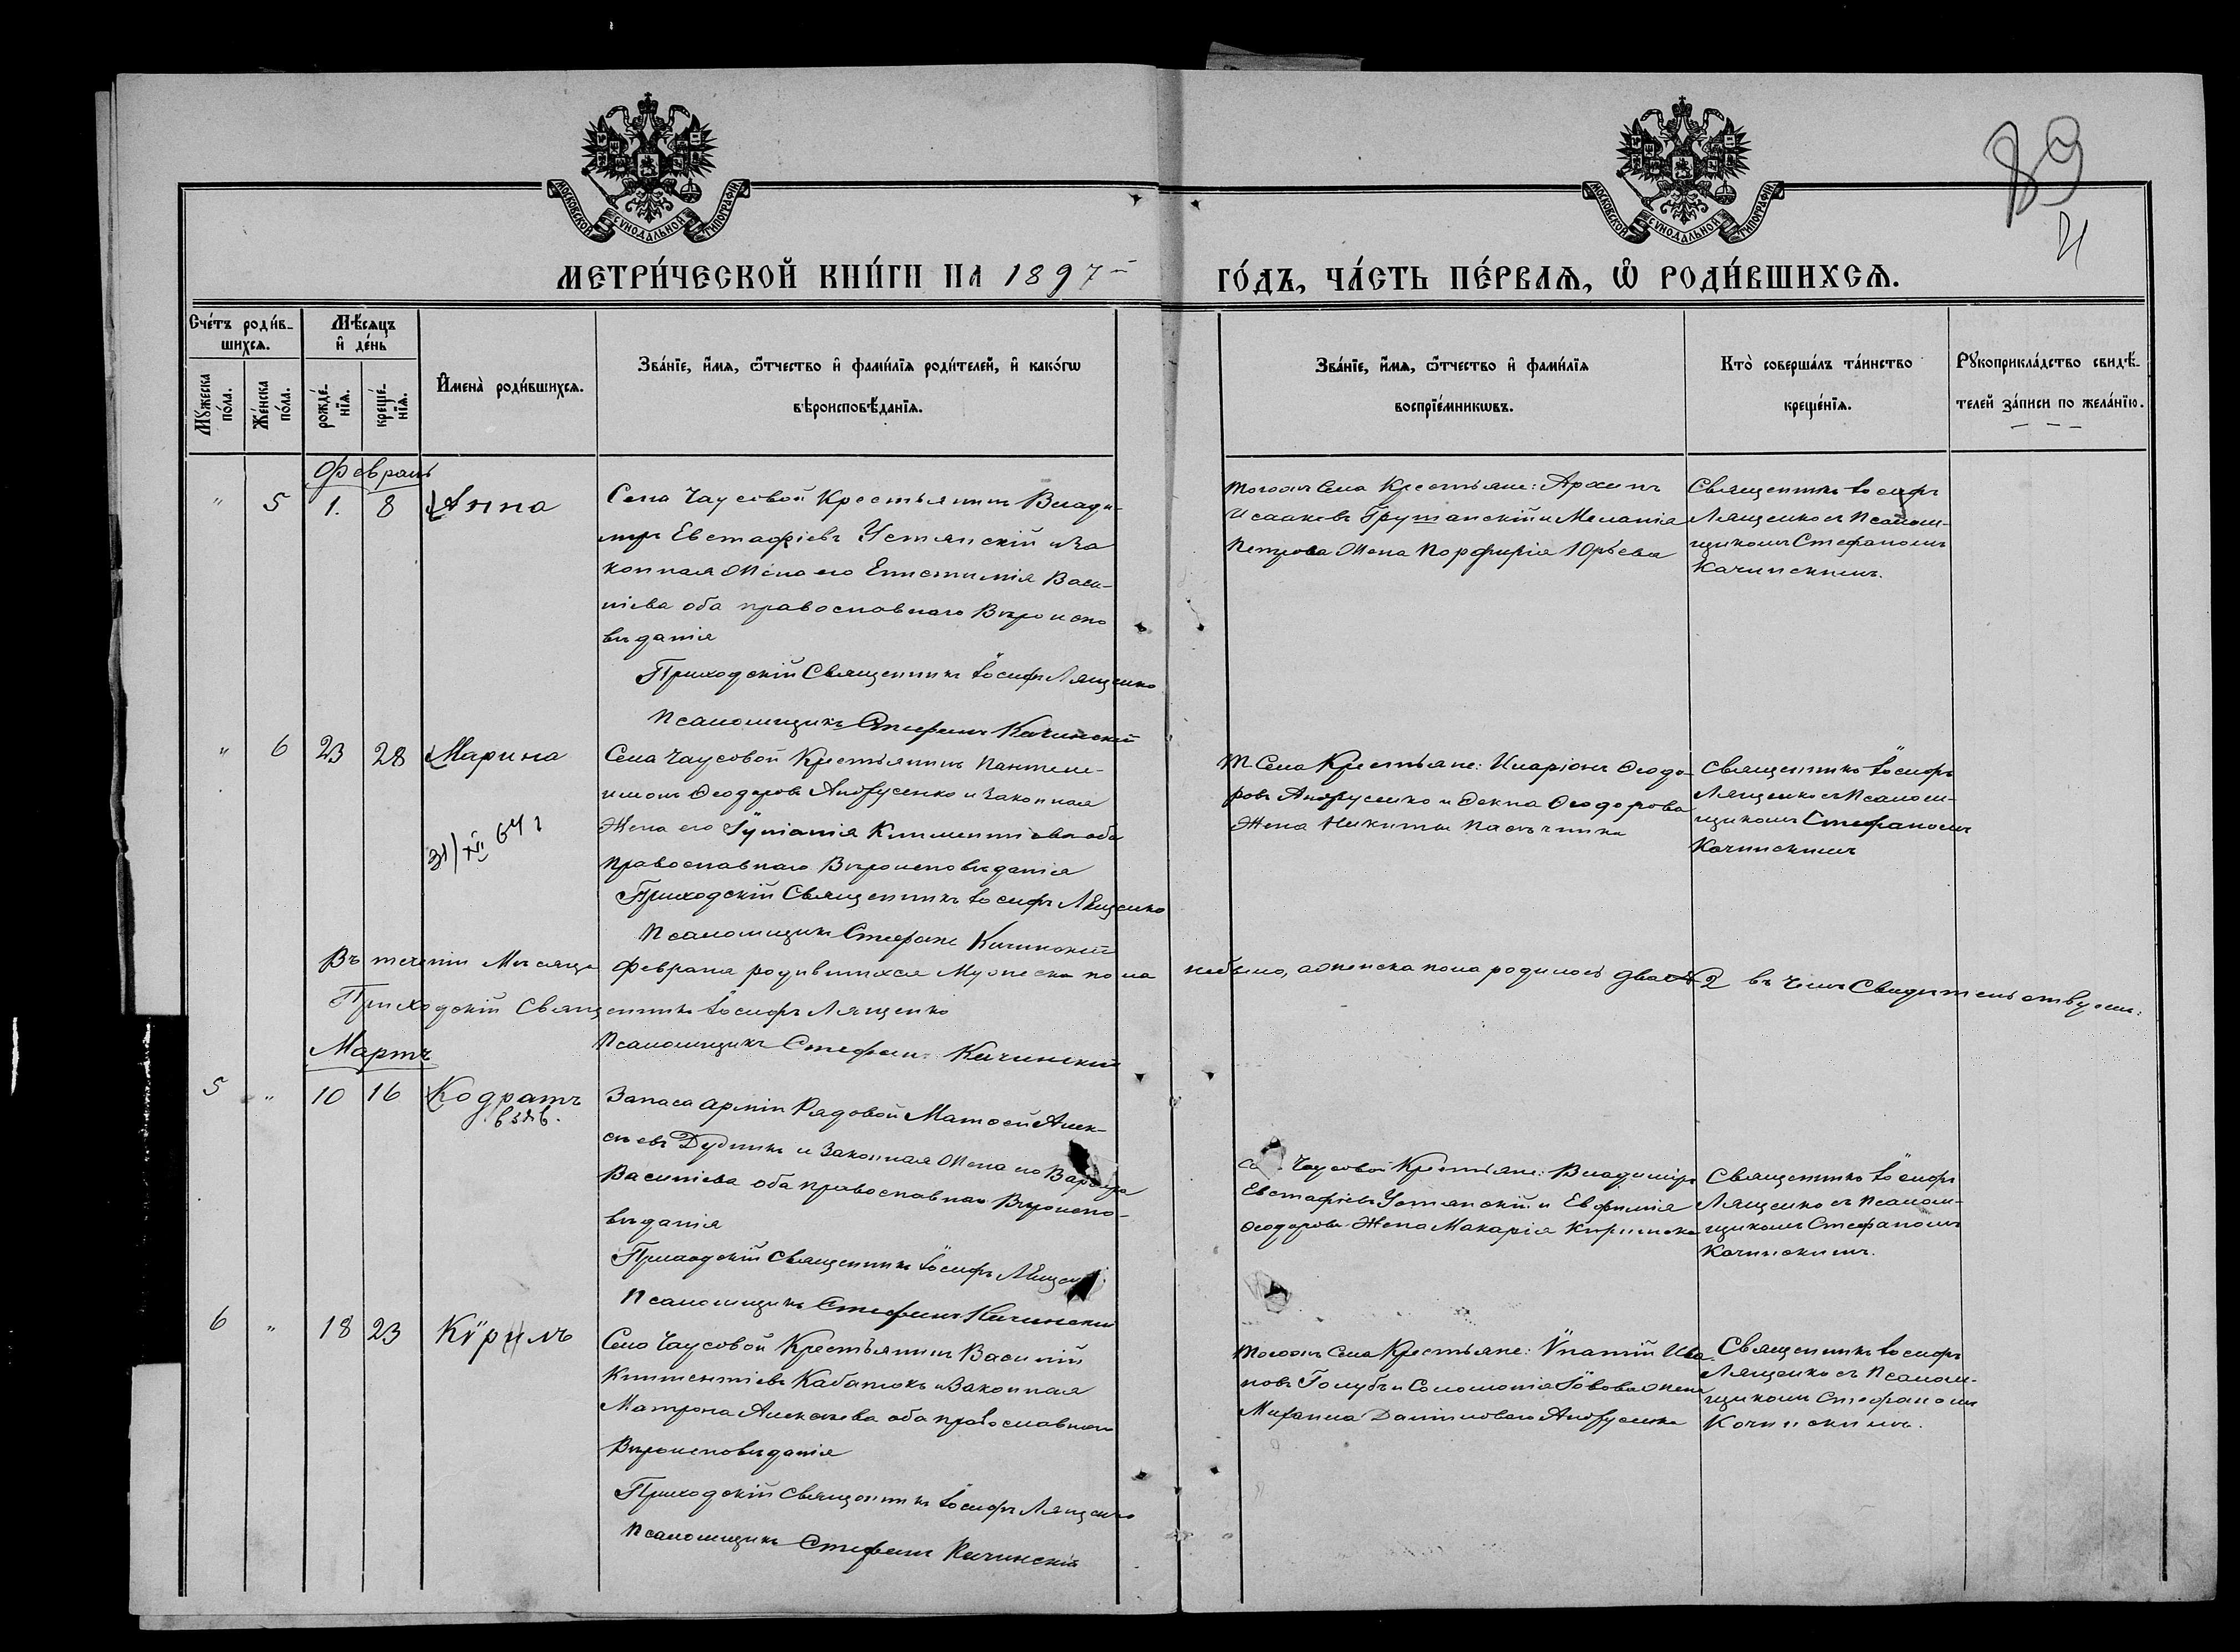 МОСКОВСКОЙ СѴНОДАЛЬНОЙ ТИПОГРАФІИ
МОСКОВСКОЙ СѴНОДАЛЬНОЙ ТИПОГРАФІИ
89
МЕТРИ́ЧЕСКОЙ КНИ́ГИ НА 1897
ГО́ДЪ, ЧА́СТЬ ПЕ́РВАѦ, Ѡ҆ РОДИ́ВШИХСѦ.
Сче́тъ роди́в-
шихсѧ.
Мꙋ́жеска
по́ла.
Же́нска
по́ла.
Мѣ́сѧцъ
и҆ де́нь
рожде́-
нїѧ.
креще́-
нїѧ.
И҆мена̀ роди́вшихсѧ.
Зва́нїе, и҆́мѧ, ѻ҆́тчество и҆ фамилїѧ роди́телей, и҆ како́гѡ
вѣроисповѣ́данїѧ.
Зва́нїе, и҆́мѧ, ѻ҆́тчество и҆ фами́лїѧ
воспрїе́мникѡвъ.
Кто̀ соверша́лъ та́инство
креще́нїѧ.
Рꙋкоприкла́дство свидѣ́-
телей за́писи по жела́нїю.
Февраль
" 5 1. 8 Анна
Села Чаусовой Крестьянинъ Влади-
миръ Евстафіевъ Устянскій и За
конная Жена его Епистимія Васи-
ліева оба православнаго Вѣроиспо
вѣданія
Приходскій Священникъ Іосифъ Лященко
Псаломщикъ Стефанъ Качинскій
Тогожъ Села Крестьяне: Архипъ
Исааковъ Грушанскій и Меланія
Петрова Жена Порфирія Юрьева
Священникъ Іосифъ
Лященко съ Псалом-
щикомъ Стефаномъ
Качинскимъ.
" 6 23 28 Марина
31/XII 64 г
Села Чаусовой Крестьянинъ Пантеле-
имонъ Ѳеодоровъ Андрусенко и Законная
Жена его Іуліанія Климентіева оба
Православнаго Вѣроисповѣданія
Приходскій Священникъ Іосифъ Лященко
Псаломщикъ Стефанъ Качинскій
Т. Села Крестьяне: Иларіонъ Ѳеодо-
ровъ Андрусенко и Ѳекла Ѳеодорова
Жена Никиты Пасѣчника
Священникъ Іосифъ
Лященко съ Псалом-
щикомъ Стефаномъ
Качинскимъ
Въ теченіи Мѣсяца Февраля родившихся Мужеска пола небыло, а женска пола родилось двое 2 въ чемъ Свидѣтельствуемъ:
Приходскій Священникъ Іосифъ Лященко
Псаломщикъ Стефанъ Качинскій
Мартъ
5 " 10 16 Кодратъ
взяв.
Запаса арміи Рядовой Матѳей Алек-
сѣевъ Дудникъ и Законная Жена его Варвара
Василіева оба православнаго Вѣроиспо-
вѣданія
Приходскій Священникъ Іосифъ Лященко
Псаломщикъ Стефанъ Качинскій
Чаусовой Крестьяне: Владиміръ
Евстафіевъ Устянскій и Евфимія
Ѳеодорова Жена Макарія
Священникъ Іосифъ
Лященко съ Псалом-
щикомъ Стефаномъ
Качинскимъ.
6 " 18 23 Кѵрилъ
Села Чаусовой Крестьянинъ Василій
Климентіевъ Кабатюкъ и Законная
Матрона Алексѣева оба православнаго
Вѣроисповѣданія
Приходскій Священникъ Іосифъ Лященко
Псаломщикъ Стефанъ Качинскій
Тогожъ Села Крестьяне: Ѵпатій Ива
новъ Голубъ и Соломонія Іовова Жена
Михаила Даниловаго Андрусенка
Священникъ Іосифъ
Лященко съ Псалом-
щикомъ Стефаномъ
Качинскимъ.